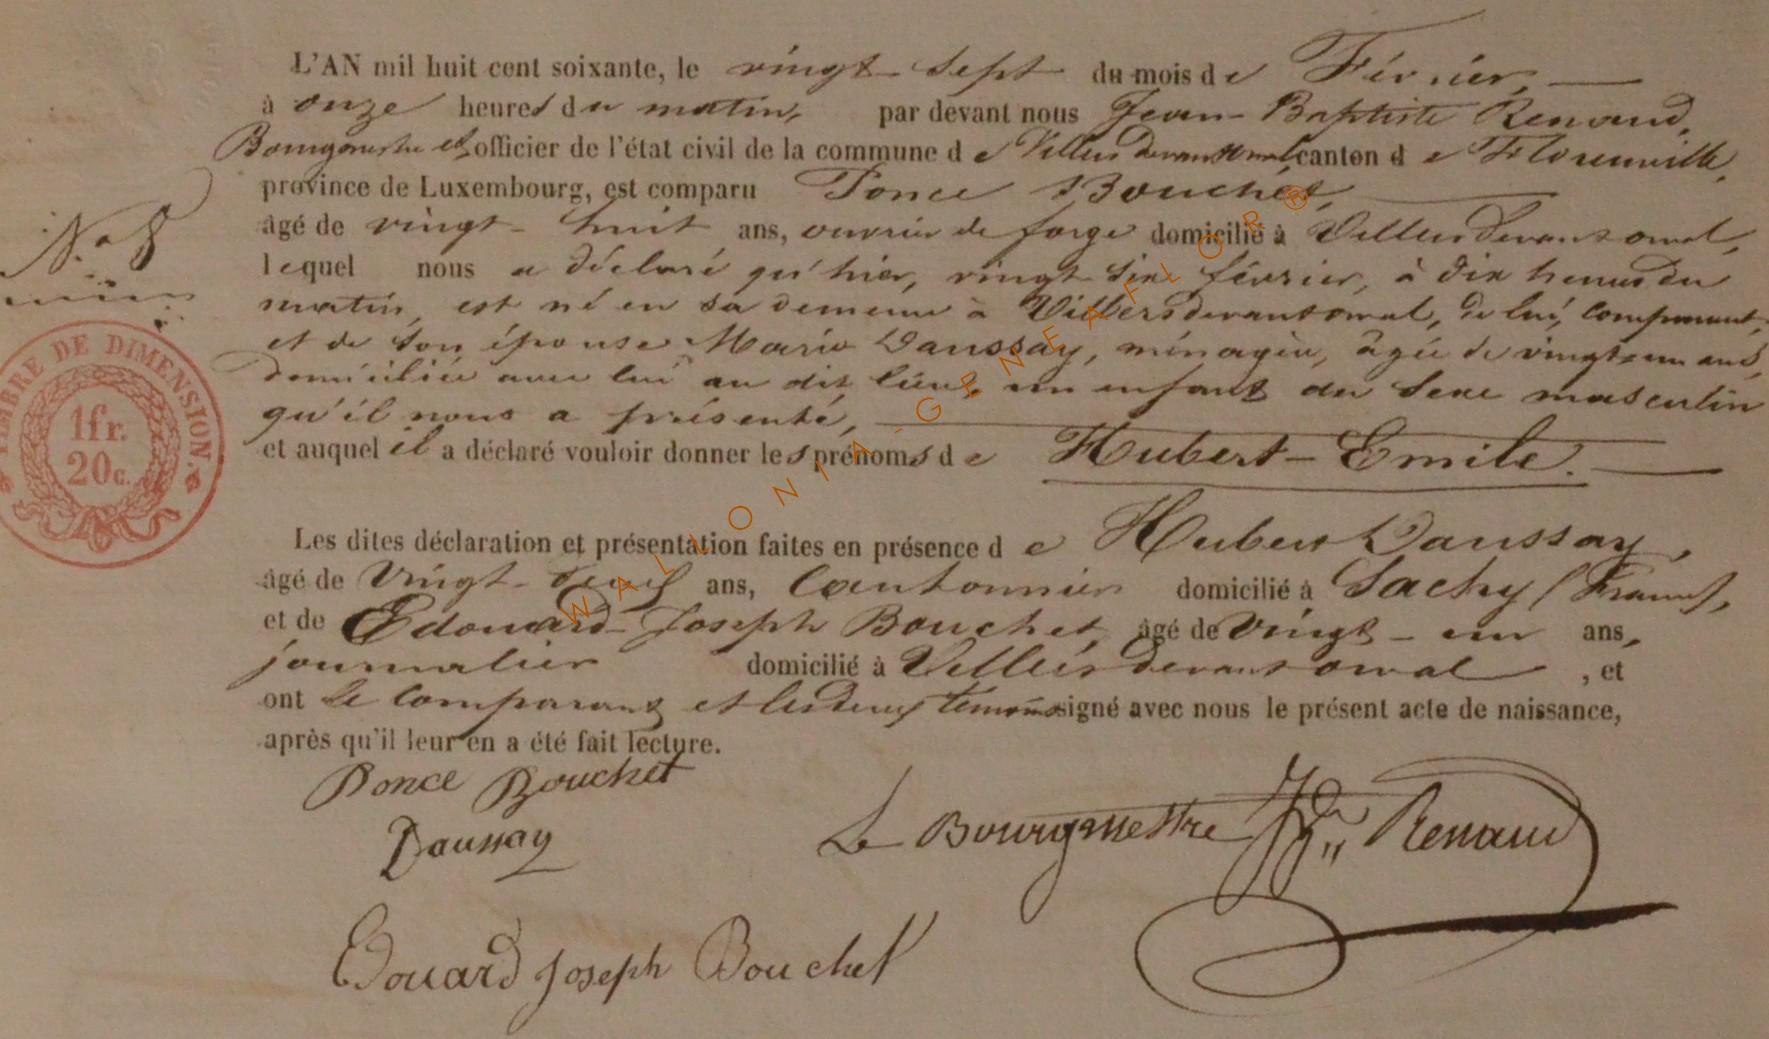 L'AN mil huit cent soixante, le vingt-sept du mois de Février,
à onze heures du matin, par devant nous Jean-Baptiste Renaud,
Bourgmestre et officier de l'état civil de la commune de Villers devant orval canton de Florenville,
province de Luxembourg, est comparu Ponce Bouchet,
âgé de vingt-huit ans, ouvrier de forge domicilié à Villers devant orval,
lequel nous a déclaré qu'hier, vingt six février, à dix heures du
N.° 8
matin, est né en sa demeure à Villers devant orval, de lui, comparant,
et de son épouse Marie Daussay, ménagère, âgée de vingt-un ans,
domiciliée avec lui au dit lieu, un enfant du sexe masculin
qu'il nous a présenté,
et auquel il a déclaré vouloir donner les prénoms de Hubert-Emile.
TIMBRE DE DIMENSION.
1fr.
20c.
Les dites déclaration et présentation faites en présence de Hubert Daussay,
âgé de vingt-neuf ans, Cantonnier domicilié à Sachy (France),
et de Edouard-Joseph Bouchet, âgé de vingt-un ans,
journalier domicilié à Villers devant orval, et
ont le comparant et les deux témoins signé avec nous le présent acte de naissance,
après qu'il leur en a été fait lecture.
Ponce Bouchet
Daussay
Le Bourgmestre Renaud
Edouard Joseph Bouchet
WALLONIA-GENEAFLOR®